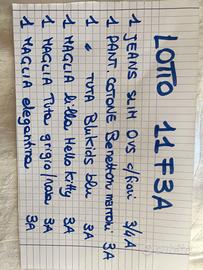 LOTTO 11 F3A
1 JEANS SLIM OVS c/fiori 3/4A
1 PANT. COTONE Benetton marroni 3A
1 " TUTA Blukids blu 3A
1 MAGLIA lilla Hello Kitty 3A
1 MAGLIA Tuta grigio/rosa 3A
1 MAGLIA elegantina 3A